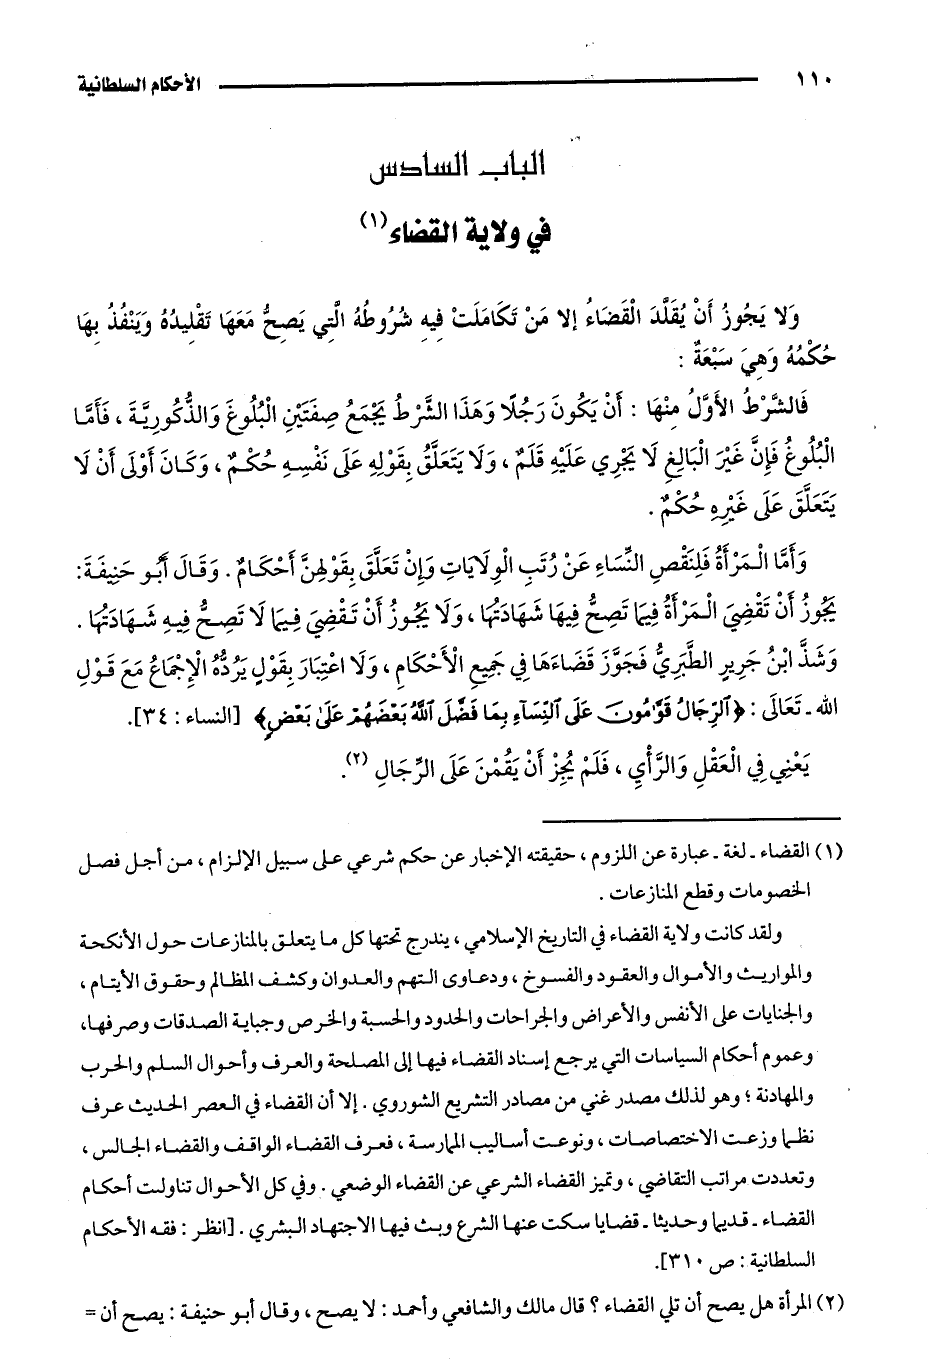 ١١٠ الأحكام السلطانية
الباب السادس
في ولاية القضاء(١)
وَلا يَجُوزُ أَنْ يُقَلَّدَ الْقَضَاءُ إلا مَنْ تَكَامَلَتْ فِيهِ شُرُوطُهُ الَّتِي يَصِحُّ مَعَهَا تَقْلِيدُهُ وَيَنْفُذُ بِهَا
حُكْمُهُ وَهِيَ سَبْعَةٌ :
فَالشَّرْطُ الأَوَّلُ مِنْهَا : أَنْ يَكُونَ رَجُلًا وَهَذَا الشَّرْطُ يَجْمَعُ صِفَتَيْنِ الْبُلُوغَ وَالذُّكُورِيَّةَ ، فَأَمَّا
الْبُلُوغُ فَإِنَّ غَيْرَ الْبَالِغِ لَا يَجْرِي عَلَيْهِ قَلَمٌ ، وَلَا يَتَعَلَّقُ بِقَوْلِهِ عَلَى نَفْسِهِ حُكْمٌ ، وَكَانَ أَوْلَى أَنْ لَا
يَتَعَلَّقَ عَلَى غَيْرِهِ حُكْمٌ .
وَأَمَّا الْمَرْأَةُ فَلِنَقْصِ النِّسَاءِ عَنْ رُتَبِ الْوِلَايَاتِ وَإِنْ تَعَلَّقَ بِقَوْلِهِنَّ أَحْكَامٌ . وَقَالَ أَبُو حَنِيفَةَ:
يَجُوزُ أَنْ تَقْضِيَ الْمَرْأَةُ فِيمَا تَصِحُّ فِيهَا شَهَادَتُهَا ، وَلَا يَجُوزُ أَنْ تَقْضِيَ فِيمَا لَا تَصِحُّ فِيهِ شَهَادَتُهَا .
وَشَذَّ ابْنُ جَرِيرٍ الطَّبَرِيُّ فَجَوَّزَ قَضَاءَهَا فِي جَمِيعِ الْأَحْكَامِ ، وَلَا اعْتِبَارَ بِقَوْلٍ يَرُدُّهُ الْإِجْمَاعُ مَعَ قَوْلِ
الله ـ تَعَالَى : ﴿ٱلرِّجَالُ قَوَّٰمُونَ عَلَى ٱلنِّسَآءِ بِمَا فَضَّلَ ٱللَّهُ بَعْضَهُمْ عَلَىٰ بَعْضٍ﴾ [النساء : ٣٤].
يَعْنِي فِي الْعَقْلِ وَالرَّأْيِ ، فَلَمْ يُجِزْ أَنْ يَقُمْنَ عَلَى الرِّجَالِ (٢).
(١) القضاء ـ لغة ـ عبارة عن اللزوم ، حقيقته الإخبار عن حكم شرعي على سبيل الإلزام ، من أجل فصل
الخصومات وقطع المنازعات .
ولقد كانت ولاية القضاء في التاريخ الإسلامي ، يندرج تحتها كل ما يتعلق بالمنازعات حول الأنكحة
والمواريث والأموال والعقود والفسوخ ، ودعاوى التهم والعدوان وكشف المظالم وحقوق الأيتام ،
والجنايات على الأنفس والأعراض والجراحات والحدود والحسبة والخرص وجباية الصدقات وصرفها،
وعموم أحكام السياسات التي يرجع إسناد القضاء فيها إلى المصلحة والعرف وأحوال السلم والحرب
والمهادنة ؛ وهو لذلك مصدر غني من مصادر التشريع الشوروي . إلا أن القضاء في العصر الحديث عرف
نظما وزعت الاختصاصات ، ونوعت أساليب الممارسة ، فعرف القضاء الواقف والقضاء الجالس ،
وتعددت مراتب التقاضي ، وتميز القضاء الشرعي عن القضاء الوضعي . وفي كل الأحوال تناولت أحكام
القضاء ـ قديما وحديثا ـ قضايا سكت عنها الشرع وبث فيها الاجتهاد البشري . [انظر : فقه الأحكام
السلطانية : ص ٣١٠].
(٢) المرأة هل يصح أن تلي القضاء ؟ قال مالك والشافعي وأحمد : لا يصح ، وقال أبو حنيفة : يصح أن =